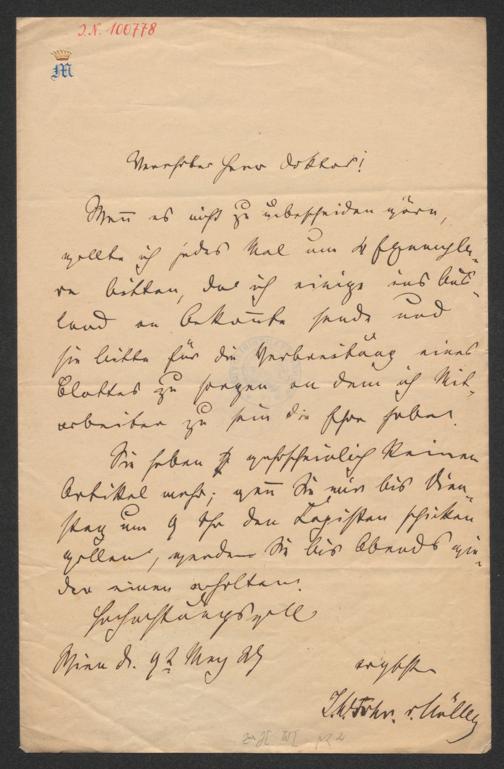 J.N. 100778
M
Verehrter Herr Doktor!
Wenn es nicht zu unbescheiden wäre,
wollte ich jedes Mal um 4 Exempla-
re bitten, da ich einige ins Aus-
land an Bekannte sende und
sie bitte für die Verbreitung eines
Blattes zu sorgen an dem ich Mit-
arbeiter zu sein die Ehre habe.
Sie haben wahrscheinlich keinen
Artikel mehr; wenn Sie mir bis Dien-
stag um 9 Uhr den Copisten schicken
wollen, werden Sie bis Abends wie-
der einen erhalten.
Hochachtungsvoll
Wien d. 9t May
ergebst
Frhr. v.